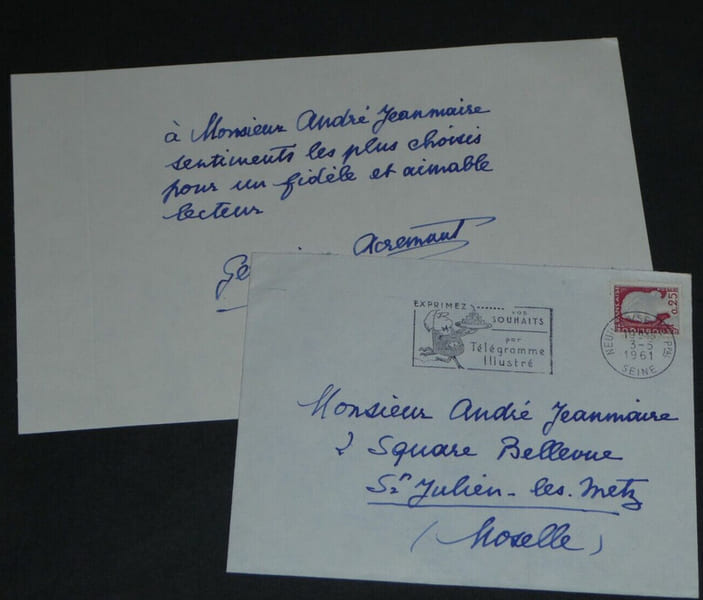 à Monsieur André Jeanmaire
sentiments les plus choisis
pour un fidèle et aimable
lecteur
Acremant
EXPRIMEZ
VOS
SOUHAITS
par
Télégramme
Illustré
0,25F
3-5
1961
SEINE
Monsieur André Jeanmaire
2 Square Bellevue
St Julien-les-Metz
(Moselle)